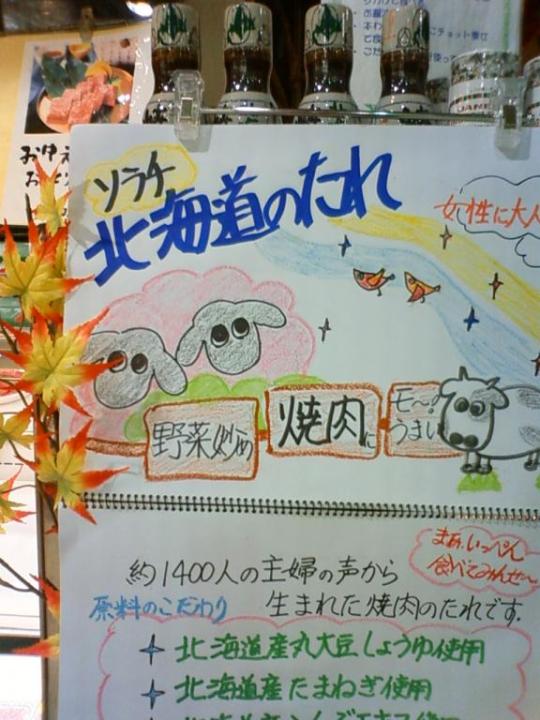 ソラチ
北海道のたれ
女性に大人
野菜炒め
焼肉に
モ〜!
うまい
まぁ、いっぺん
食べてみんせ〜
約1400人の主婦の声から
生まれた焼肉のたれです。
原料のこだわり
北海道産丸大豆しょうゆ使用
北海道産たまねぎ使用